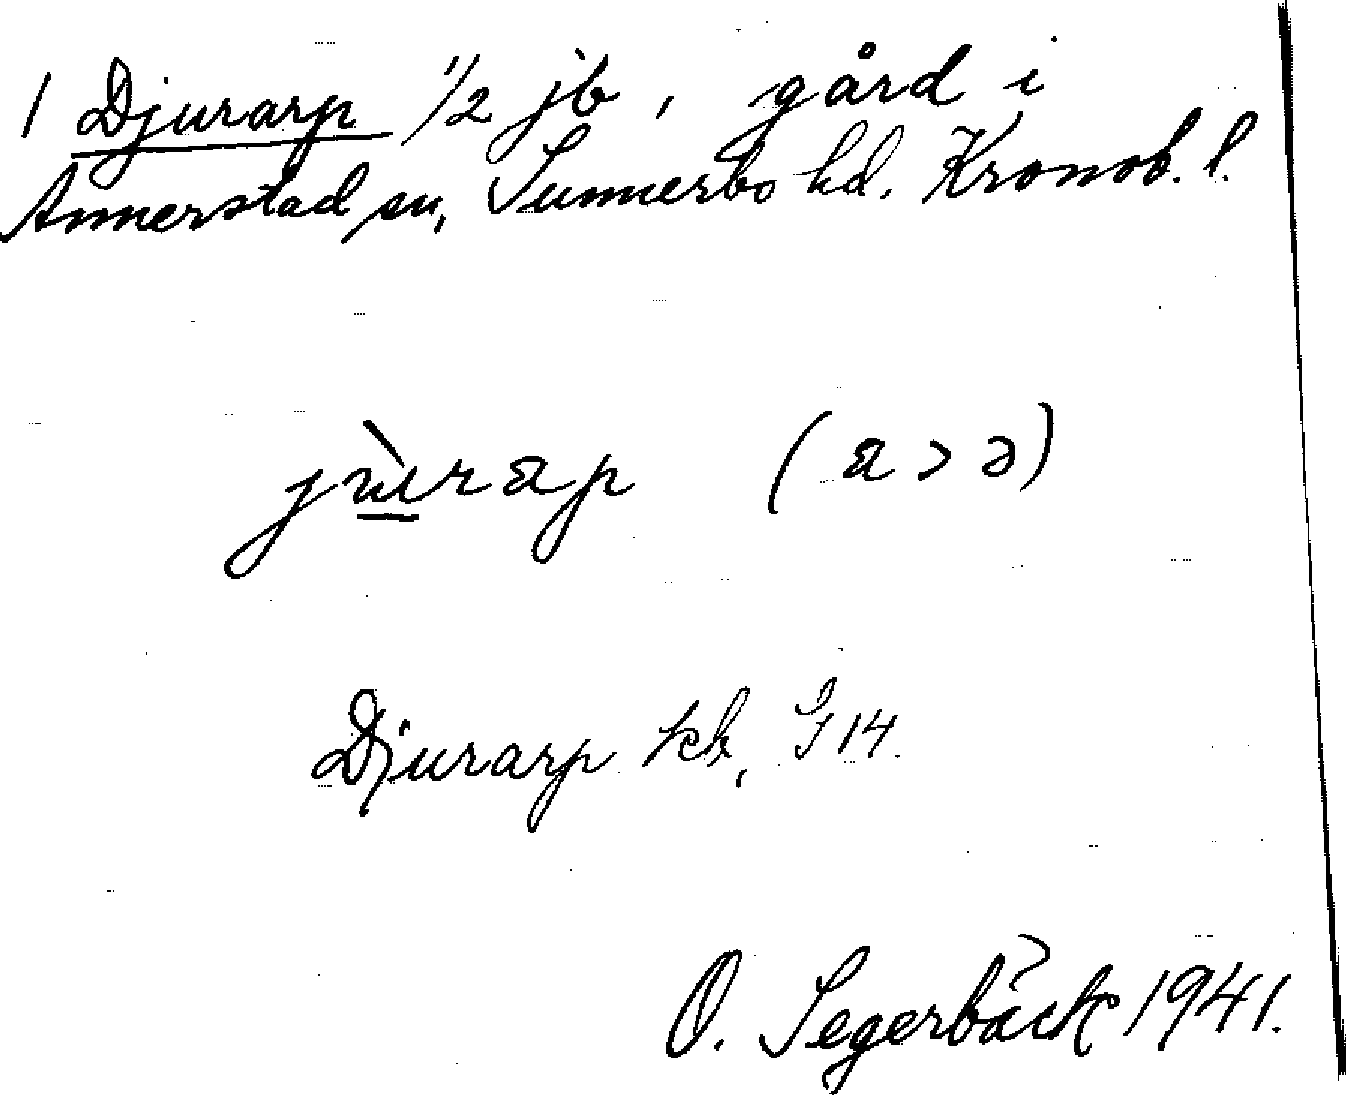 1 Djurarp 1/2 jb, gård i
Annerstad sn, Sunnerbo hd. Kronob. l.
jùrap (a > ə)
Djurarp kb, G 14.
O. Segerbäck 1941.